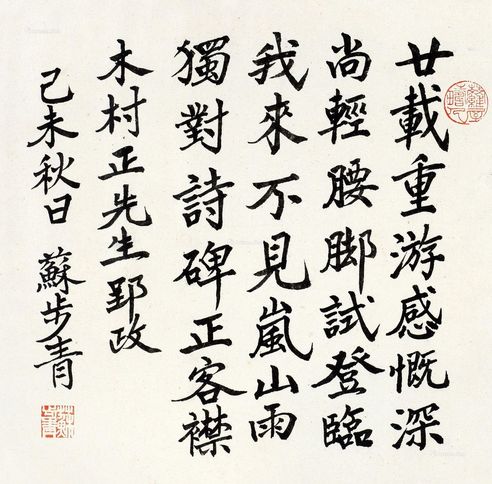 廿載重游感慨深
尚輕腰脚試登臨
我來不見嵐山雨
獨對詩碑正客襟
木村正先生郢政
己未秋日 蘇步青